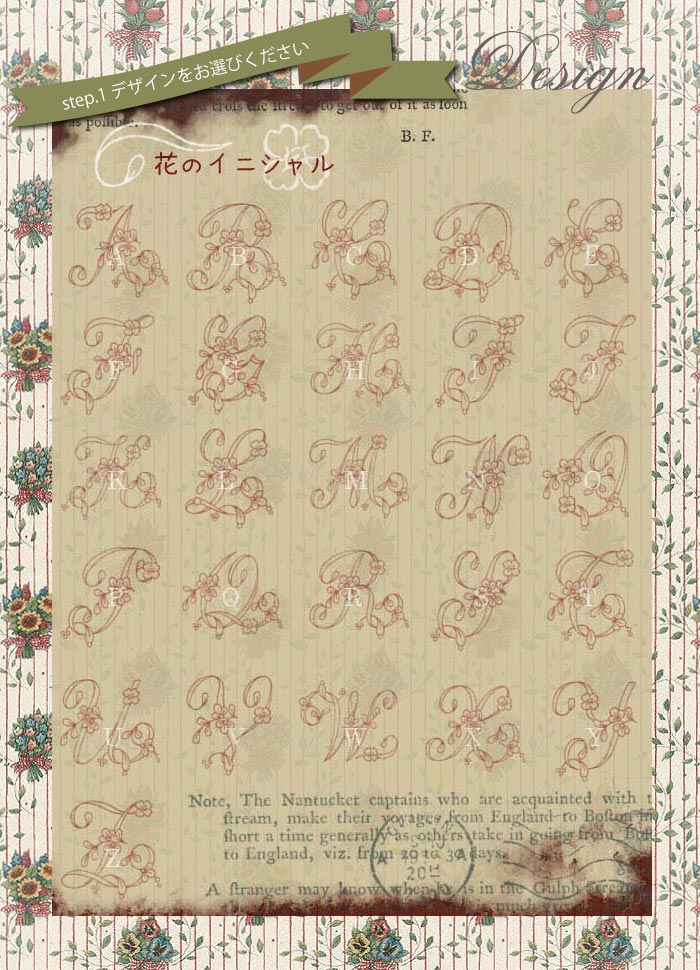 step.1 デザインをお選びください
Design
to get out of it as soon
B. F.
花のイニシャル
A B C D E
F G H I J
K L M N O
P Q R S T
U V W X Y
Note, The Nantucket captains who are acquainted with
ſtream, make their voyages from England to Boſton
ſhort a time generally as others take in going from
to England, viz. from 20 to 30 days.
Z
A ſtranger may know when he is in the Gulph